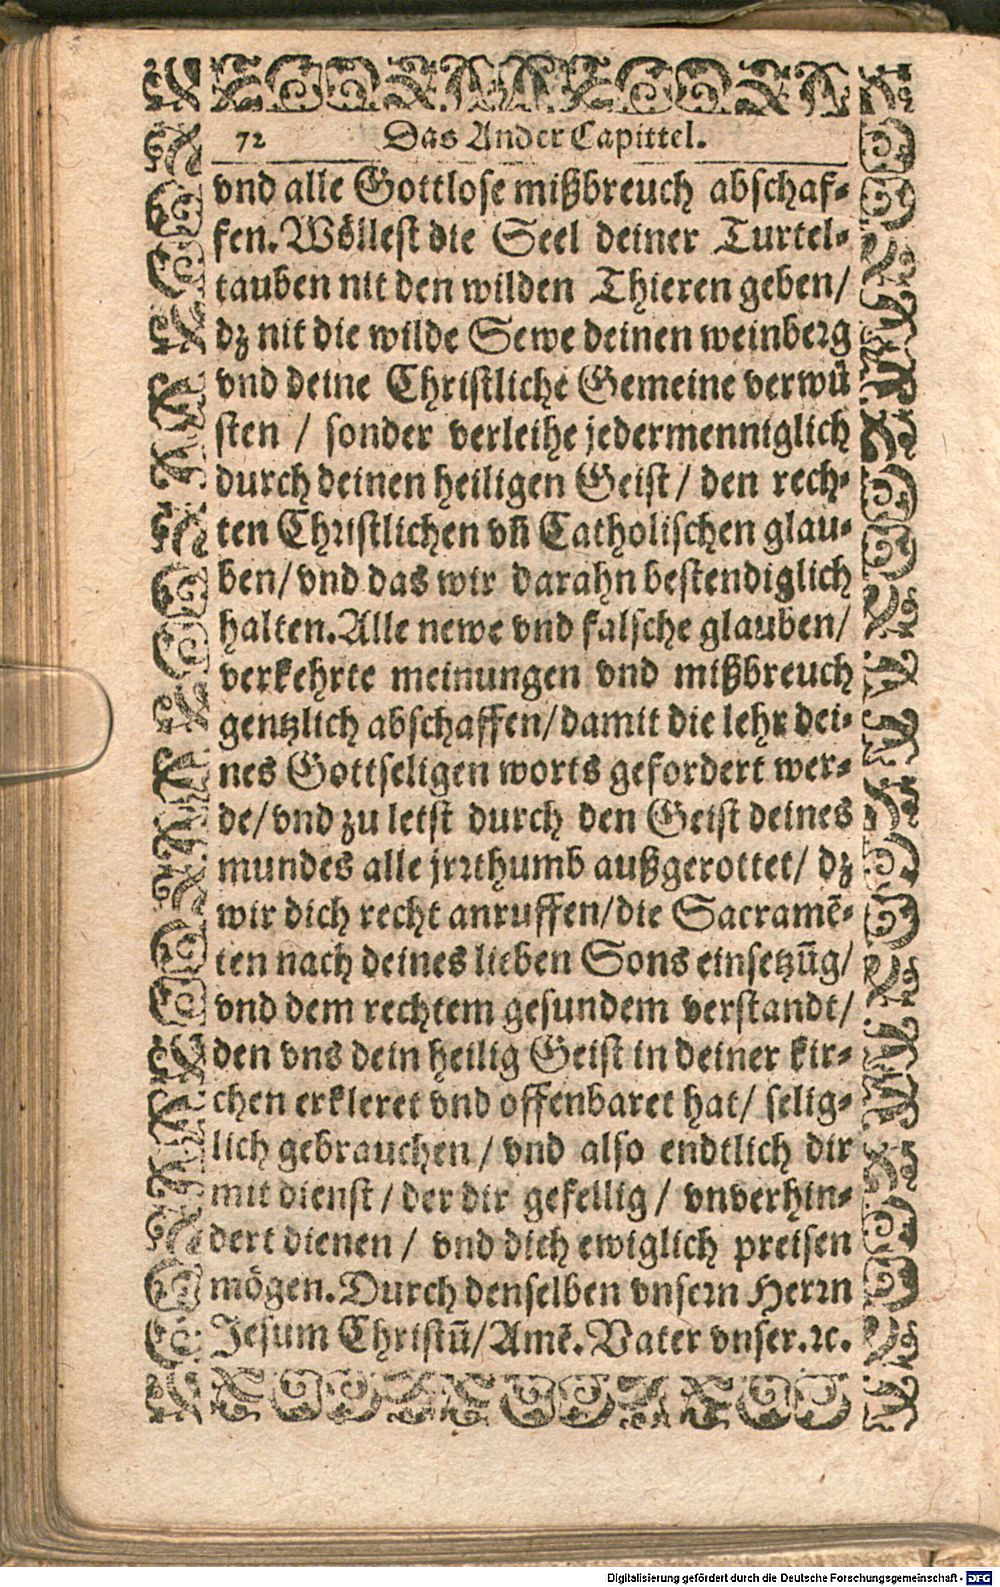 72 Das Ander Capittel.
vnd alle Gottlose mißbreuch abschaf-
fen. Wöllest die Seel deiner Turtel-
tauben nit den wilden Thieren geben/
dz nit die wilde Sewe deinen weinberg
vnd deine Christliche Gemeine verwü
sten / sonder verleihe jedermenniglich
durch deinen heiligen Geist / den rech-
ten Christlichen vñ Catholischen glau-
ben/ vnd das wir darahn bestendiglich
halten. Alle newe vnd falsche glauben/
verkehrte meinungen vnd mißbreuch
gentzlich abschaffen/ damit die lehr dei-
nes Gottseligen worts gefordert wer-
de/ vnd zu letst durch den Geist deines
mundes alle jrrthumb außgerottet/ dz
wir dich recht anruffen/ die Sacramẽ-
ten nach deines lieben Sons einsetzũg/
vnd dem rechtem gesundem verstandt/
den vns dein heilig Geist in deiner kir-
chen erkleret vnd offenbaret hat/ selig-
lich gebrauchen / vnd also endtlich dir
mit dienst / der dir gefellig / vnverhin-
dert dienen / vnd dich ewiglich preisen
mögen. Durch denselben vnsern Herrn
Jesum Christũ/ Amẽ. Vater vnser. ꝛc.
Digitalisierung gefördert durch die Deutsche Forschungsgemeinschaft - DFG